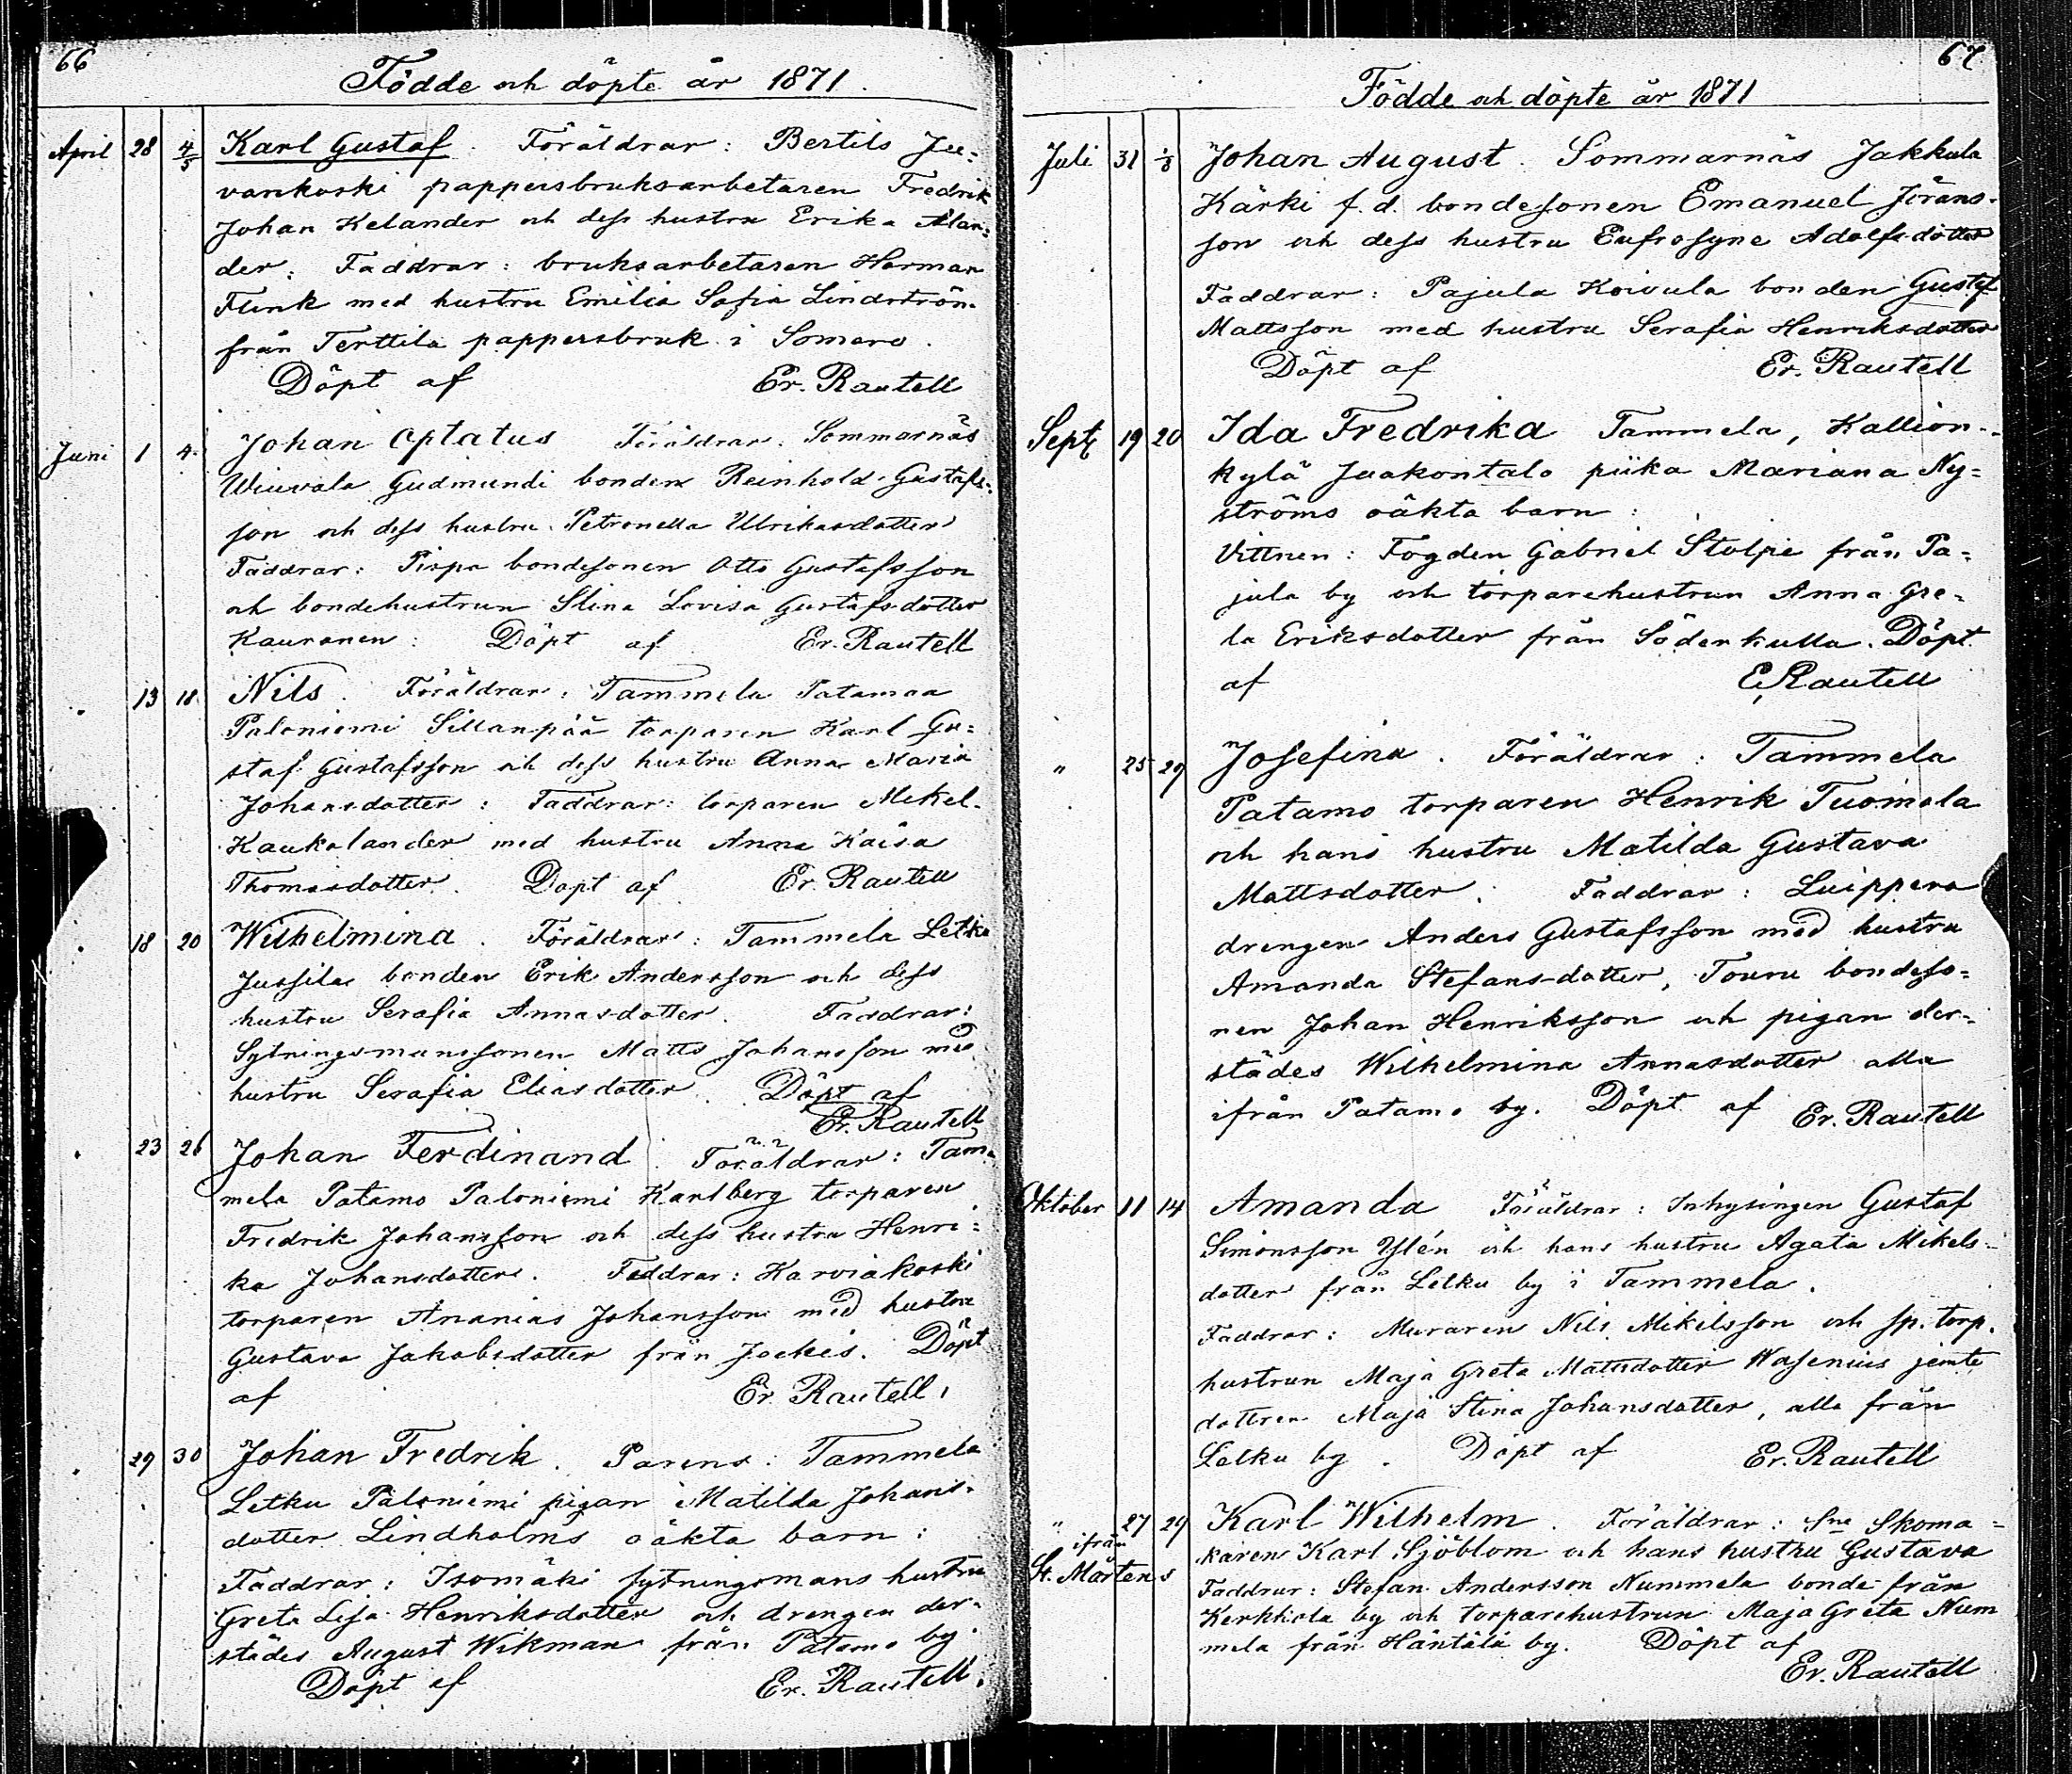 66
Födde och döpte år 1871.
April 28 4/5 Karl Gustaf. Föräldrar: Bertils Ju=
vankoski pappersbruksarbetaren Fredrik
Johan Kelander och dess hustru Erika Alan=
der: Faddrar: bruksarbetaren Herman
Flink med hustru Emilia Sofia Lindström
från Terttila pappersbruk i Somero.
Döpt af Er. Rautell
Juni 1 4. Johan Optatus Föräldrar: Sommarnäs
Wiuvala Gudmundi bonden Reinhold Gustafs=
son och dess hustru Petronella Ulrikasdotter
Faddrar: Pispa bondesonen Otto Gustafsson
och bondehustrun Stina Lovisa Gustafsdotter
Kauranen: Döpt af Er. Rautell
13 18. Nils. Föräldrar: Tammela Patamaa
Paloniemi Sillanpää torparen Karl Gu=
staf Gustafsson och dess hustru Anna Maria
Johansdotter: Faddrar: torparen Mikel
Kaukolander med hustru Anna Kaisa
Thomasdotter. Döpt af Er. Rautell
18 20 Wilhelmina. Föräldrar: Tammela Letku
Jussila bonden Erik Andersson och dess
hustru Serafia Annasdotter. Faddrar:
Sytningsmanssonen Matts Johansson med
hustru Serafia Eliasdotter. Döpt af
Er. Rautell
23 26 Johan Ferdinand. Föräldrar: Tam=
mela Patamo Paloniemi Karlberg torparen
Fredrik Johansson och dess hustru Henri=
ka Johansdotter. Faddrar: Karviakoski
torparen Ananias Johansson med hustru
Gustava Jakobsdotter från Jockis. Döpt
af Er. Rautell.
29 30 Johan Fredrik. Parens: Tammela
Letku Paloniemi pigan Matilda Johans=
dotter Lindholms oäkta barn:
Faddrar: Isomäki sytningsmans hustru
Greta Lisa Henriksdotter och drengen der=
städes August Wikman från Patamo by.
Döpt af Er. Rautell.
67
Födde och döpte år 1871
Juli 31 1/8 Johan August. Sommarnäs Jakkula
Kärki f.d. bondesonen Emanuel Jörans=
son och dess hustru Eufrosyne Adolfsdotter
Faddrar: Pajula Koivula bonden Gustaf
Mattsson med hustru Serafia Henriksdotter
Döpt af Er. Rautell
Sept 19 20 Ida Fredrika Tammela, Kallion=
kylä Juakontalo piika Mariana Ny=
ströms oäkta barn:
Vittnen: Fogden Gabriel Stolpe från Pa=
jula by och torparehustrun Anna Gre=
ta Eriksdotter från Söderkulla. Döpt
af E. Rautell
" 25 29 Josefina. Föräldrar: Tammela
Patamo torparen Henrik Tuomola
och hans hustru Matilda Gustava
Mattsdotter. Faddrar: Luippera
drengen Anders Gustafsson med hustru
Amanda Stefansdotter, Touru bondeso=
nen Johan Henriksson och pigan der=
städes Wilhelmina Annasdotter alla
ifrån Patamo by. Döpt af Er. Rautell
Oktober 11 14 Amanda Föräldrar: Inhysingen Gustaf
Simonsson Ylén och hans hustru Agata Mikels=
dotter från Letku by i Tammela.
Faddrar: Muraren Nils Mikelsson och sp. torp.
hustrun Maja Greta Mattsdotter Wasenius jemte
dottren Maja Stina Johansdotter, alla från
Letku by. Döpt af Er. Rautell
" 27 29 Karl Wilhelm. Föräldrar: Sne Skoma=
ifrån
karen Karl Sjöblom och hans hustru Gustava
St. Mårtens
Faddrar: Stefan Andersson Nummela bonde från
Kerkkola by och torparehustrun Maja Greta Num
mela från Häntälä by. Döpt af
Er. Rautell